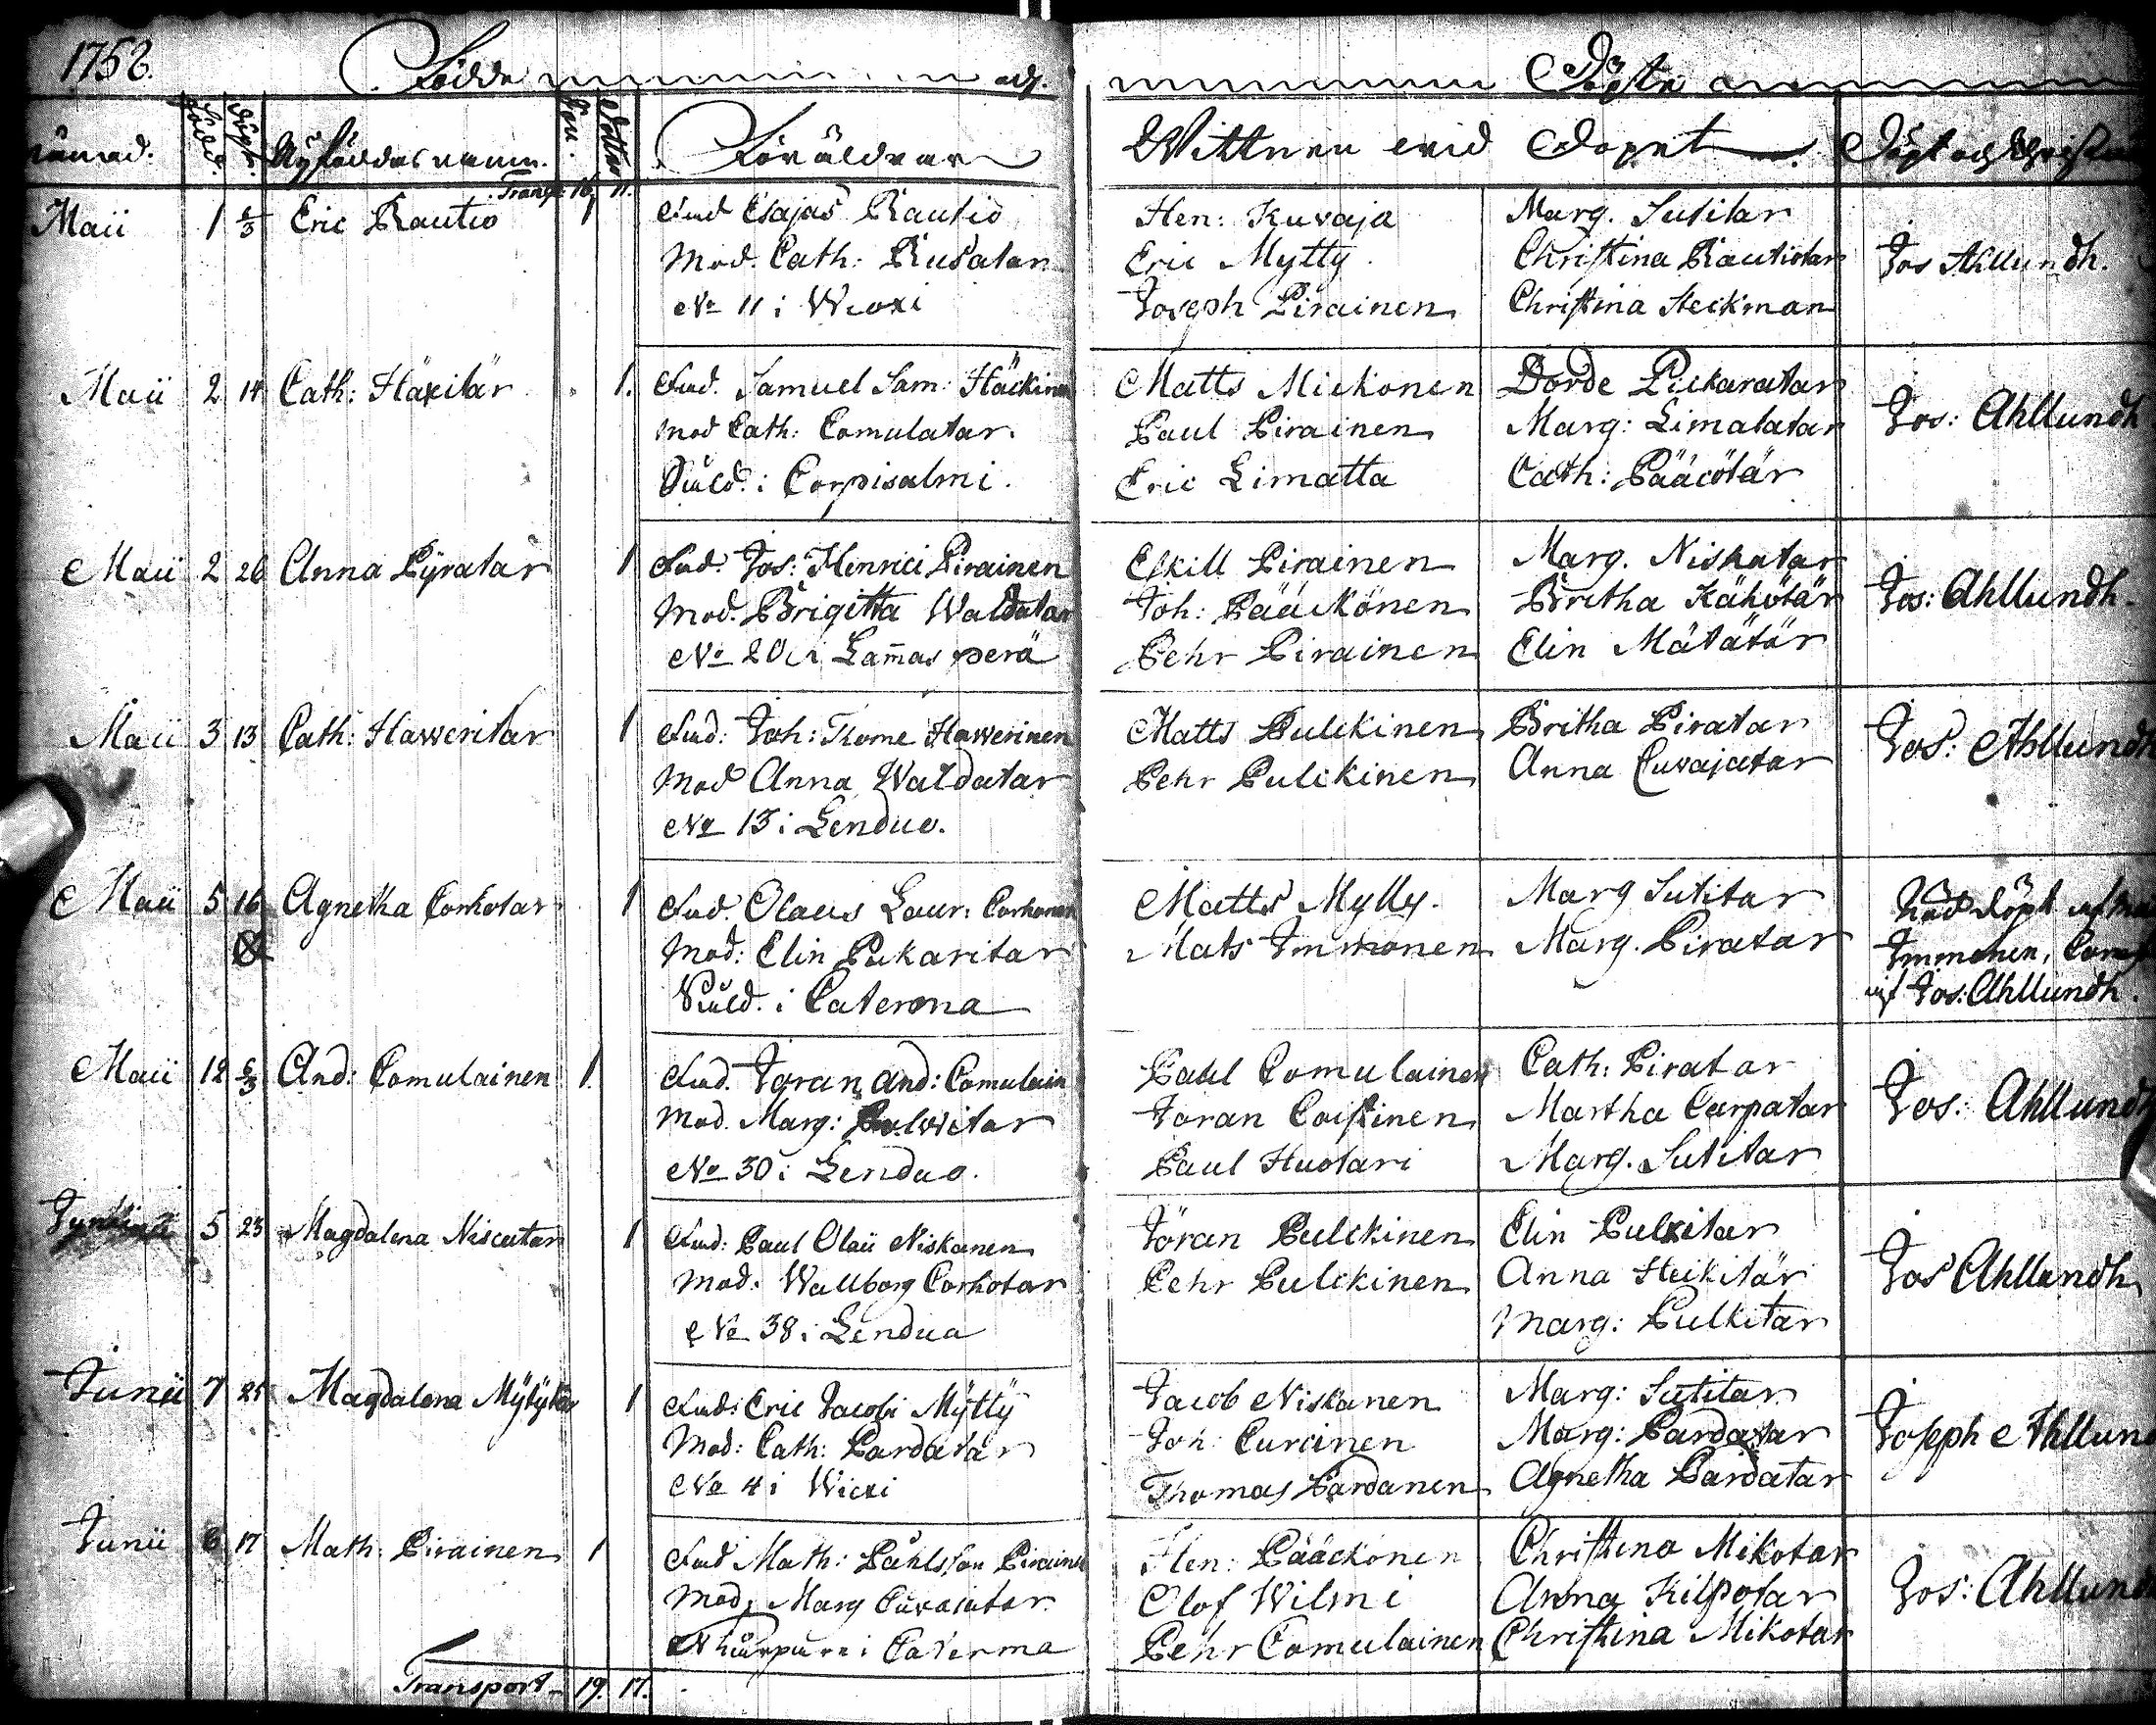 1758. Födde och Döpte
Månad. Född. Döpt. Nyföddas namn. Son. Dotter Föräldrar Wittnen wid Dopet Döpt och Christnad
Transp. 16 11.
Maii 1 5/3 Eric Rautio 1 Fad Esajas Rautio Hen: Kuvaja Marg. Sutitar Jos Ahllundh.
Mod. Cath: Rusatar Eric Mytty. Christina Rautiotar
No 11 i Wiexi Joseph Pirainen Christina Heickman
Maii 2 14 Cath: Häxitär 1. Fad. Samuel Sam: Häckinen Matts Mickonen Dorde Pickaratar Jos: Ahllundh
Mod Cath: Comulatar. Paul Pirainen Marg: Limatatar
Huld. i Corpisalmi. Eric Limatta Cath: Pääcötär
Maii 2 26 Anna Pyratar 1 Fad. Jos: Henrici Pirainen Eskill Pirainen Marg. Niskatar Jos: Ahllundh.
Mod. Brigitta Waldatar Joh: Pääckönen Britha Kähötär
No 20 i Lam̄as perä Pehr Pirainen Elin Mätätär
Maii 3 13 Cath: Haweritar 1 Fad: Joh: Thome Hawerinen Matts Pulckinen Britha Piratar Jos: Ahllundh
Mod Anna Waldatar Pehr Pulckinen Anna Cuvajatar
No 13 i Lendua.
Maii 5 16 Agnetha Corhotar 1 Fad. Olaus Laur: Corhonen Matts Mylly. Marg Sutitar Nöd döpt af
Mod: Elin Puckaritar Mats Immonen Marg. Piratar Immonen,
Huld. i Caterma af Jos: Ahllundh.
Maii 12 5/3 And: Comulainen 1. Fad. Joran And: Comulain Paul Comulainen Cath: Piratar Jos: Ahllund
Mod. Marg: Joran Coistinen Martha Carpatar
No 30 i Lendua. Paul Huotari Marg. Sutitar
5 23 Magdalena Niscatar 1 Fad: Paul Olaii Niskanen Jöran Pulckinen Elin Pulkitar Jos Ahllundh
Mod. Wallborg Corhotar Pehr Pulckinen Anna Heikitär
No 38 i Lendua Marg: Pulkitar
Junii 7 25 Magdalena Mytytär 1 Fad: Eric Jacobi Mytty Jacob Niskanen Marg: Sutitar Joseph Ahllund
Mod: Cath: Pardatar Joh: Curcinen Marg: Pardatar
No 4 i Wiexi Thomas Pardanen Agnetha Pardatar
Junii 6 17 Math: Pirainen 1 Fad Math: Påhlsson Pirainen Hen: Pääckönen Christina Mikotar Jos: Ahllund
Mod, Marg Cuvajatar Olof Wilmi Anna Kilpotar
i Caterma Pehr Comulainen Christina Mikotar
Transport 19. 17.